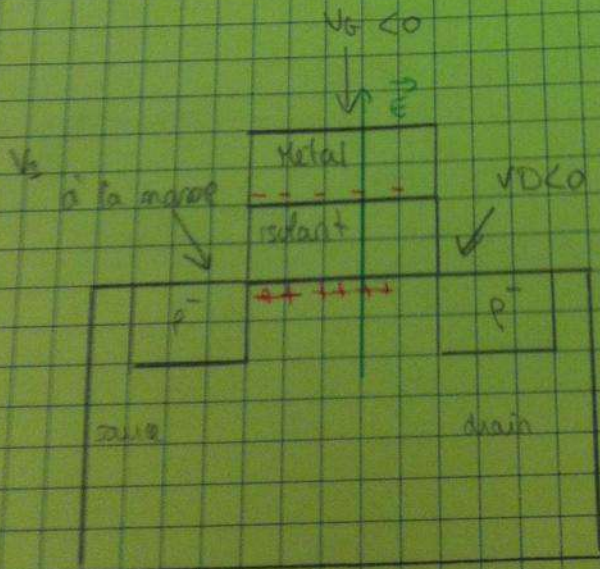 VG <0
E
Metal
- - - - -
Vs
à la masse
VD<0
isolant
++ ++ ++
P⁻
P⁻
source
drain